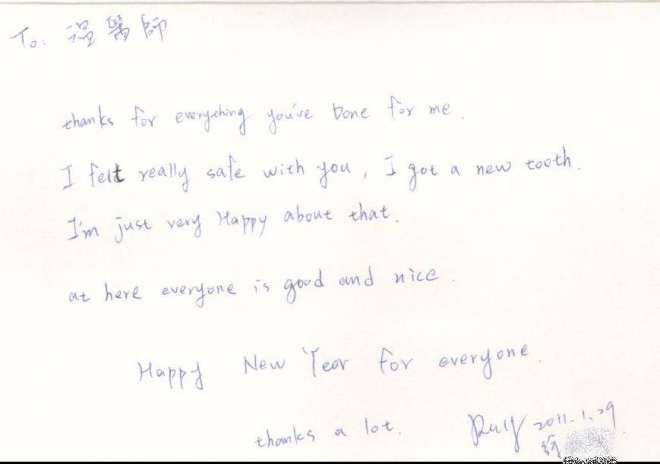 To: 溫醫師
thanks for everything you've Done for me.
I felt really safe with you, I got a new tooth.
I'm just very Happy about that.
at here everyone is good and nice.
Happy New Year for everyone.
thanks a lot.
2011.1.29